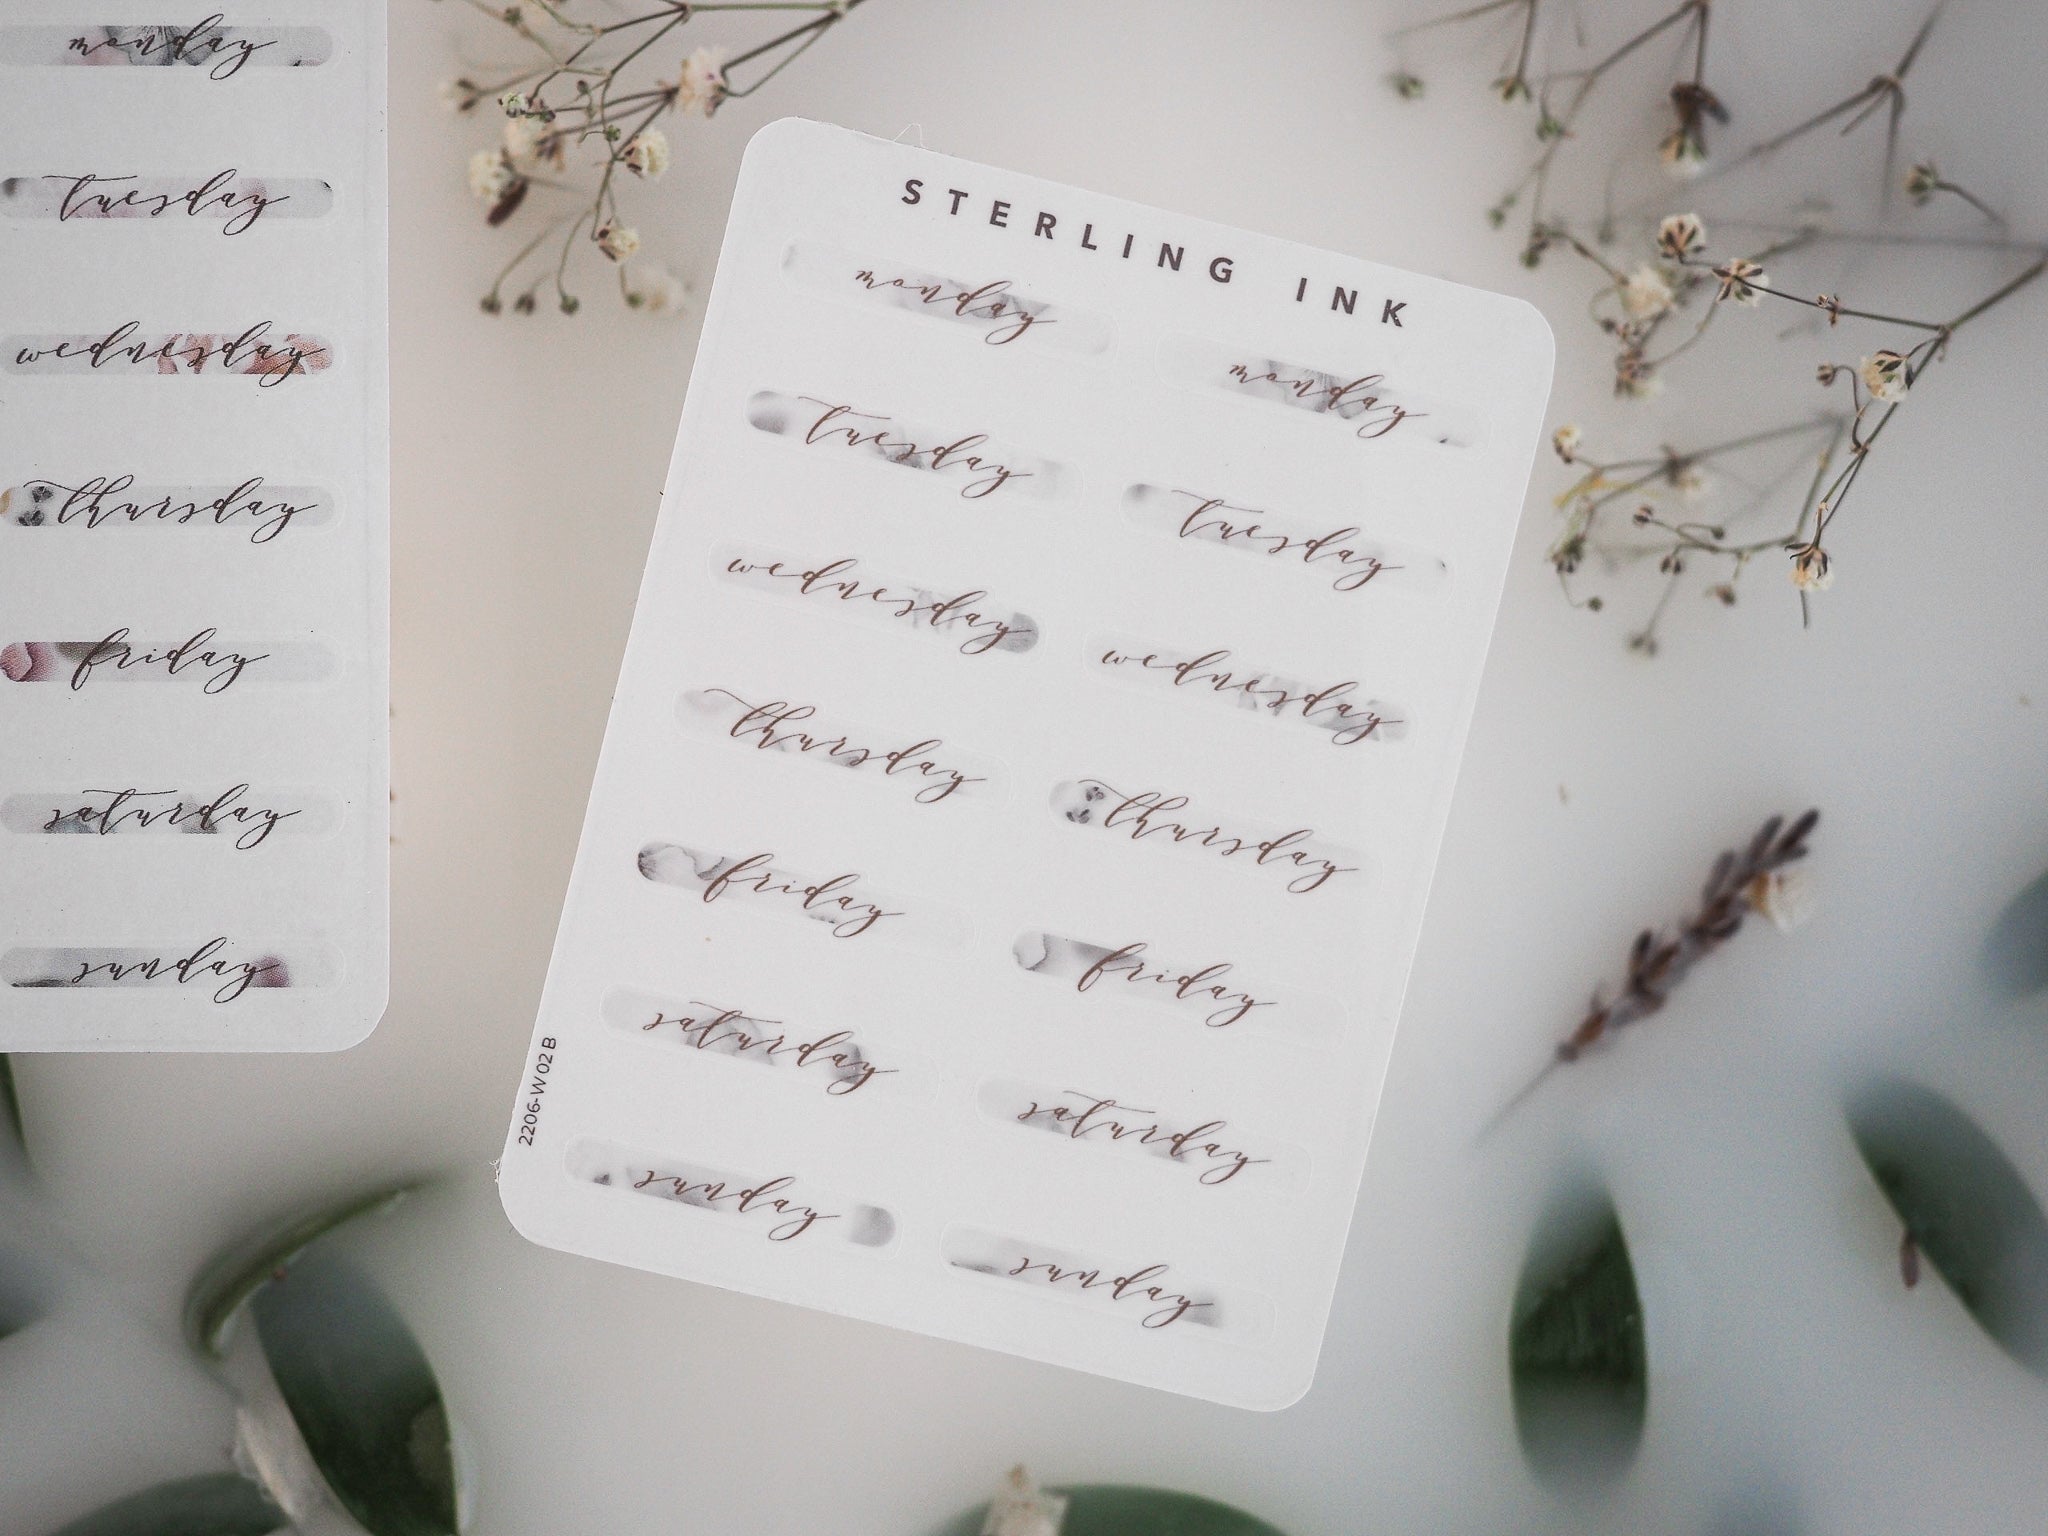 monday
tuesday
wednesday
thursday
friday
saturday
sunday
STERLING INK
monday monday
tuesday tuesday
wednesday wednesday
thursday thursday
friday friday
saturday saturday
sunday sunday
2206-W02B